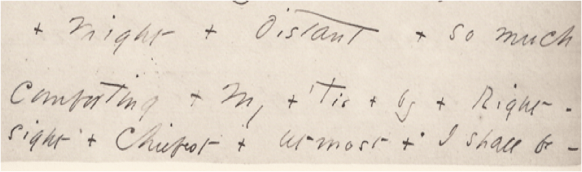 + Night + Distant + so much
Comforting + My + 'Tis + by + Right -
sight + Chiefest + utmost + I shall be -